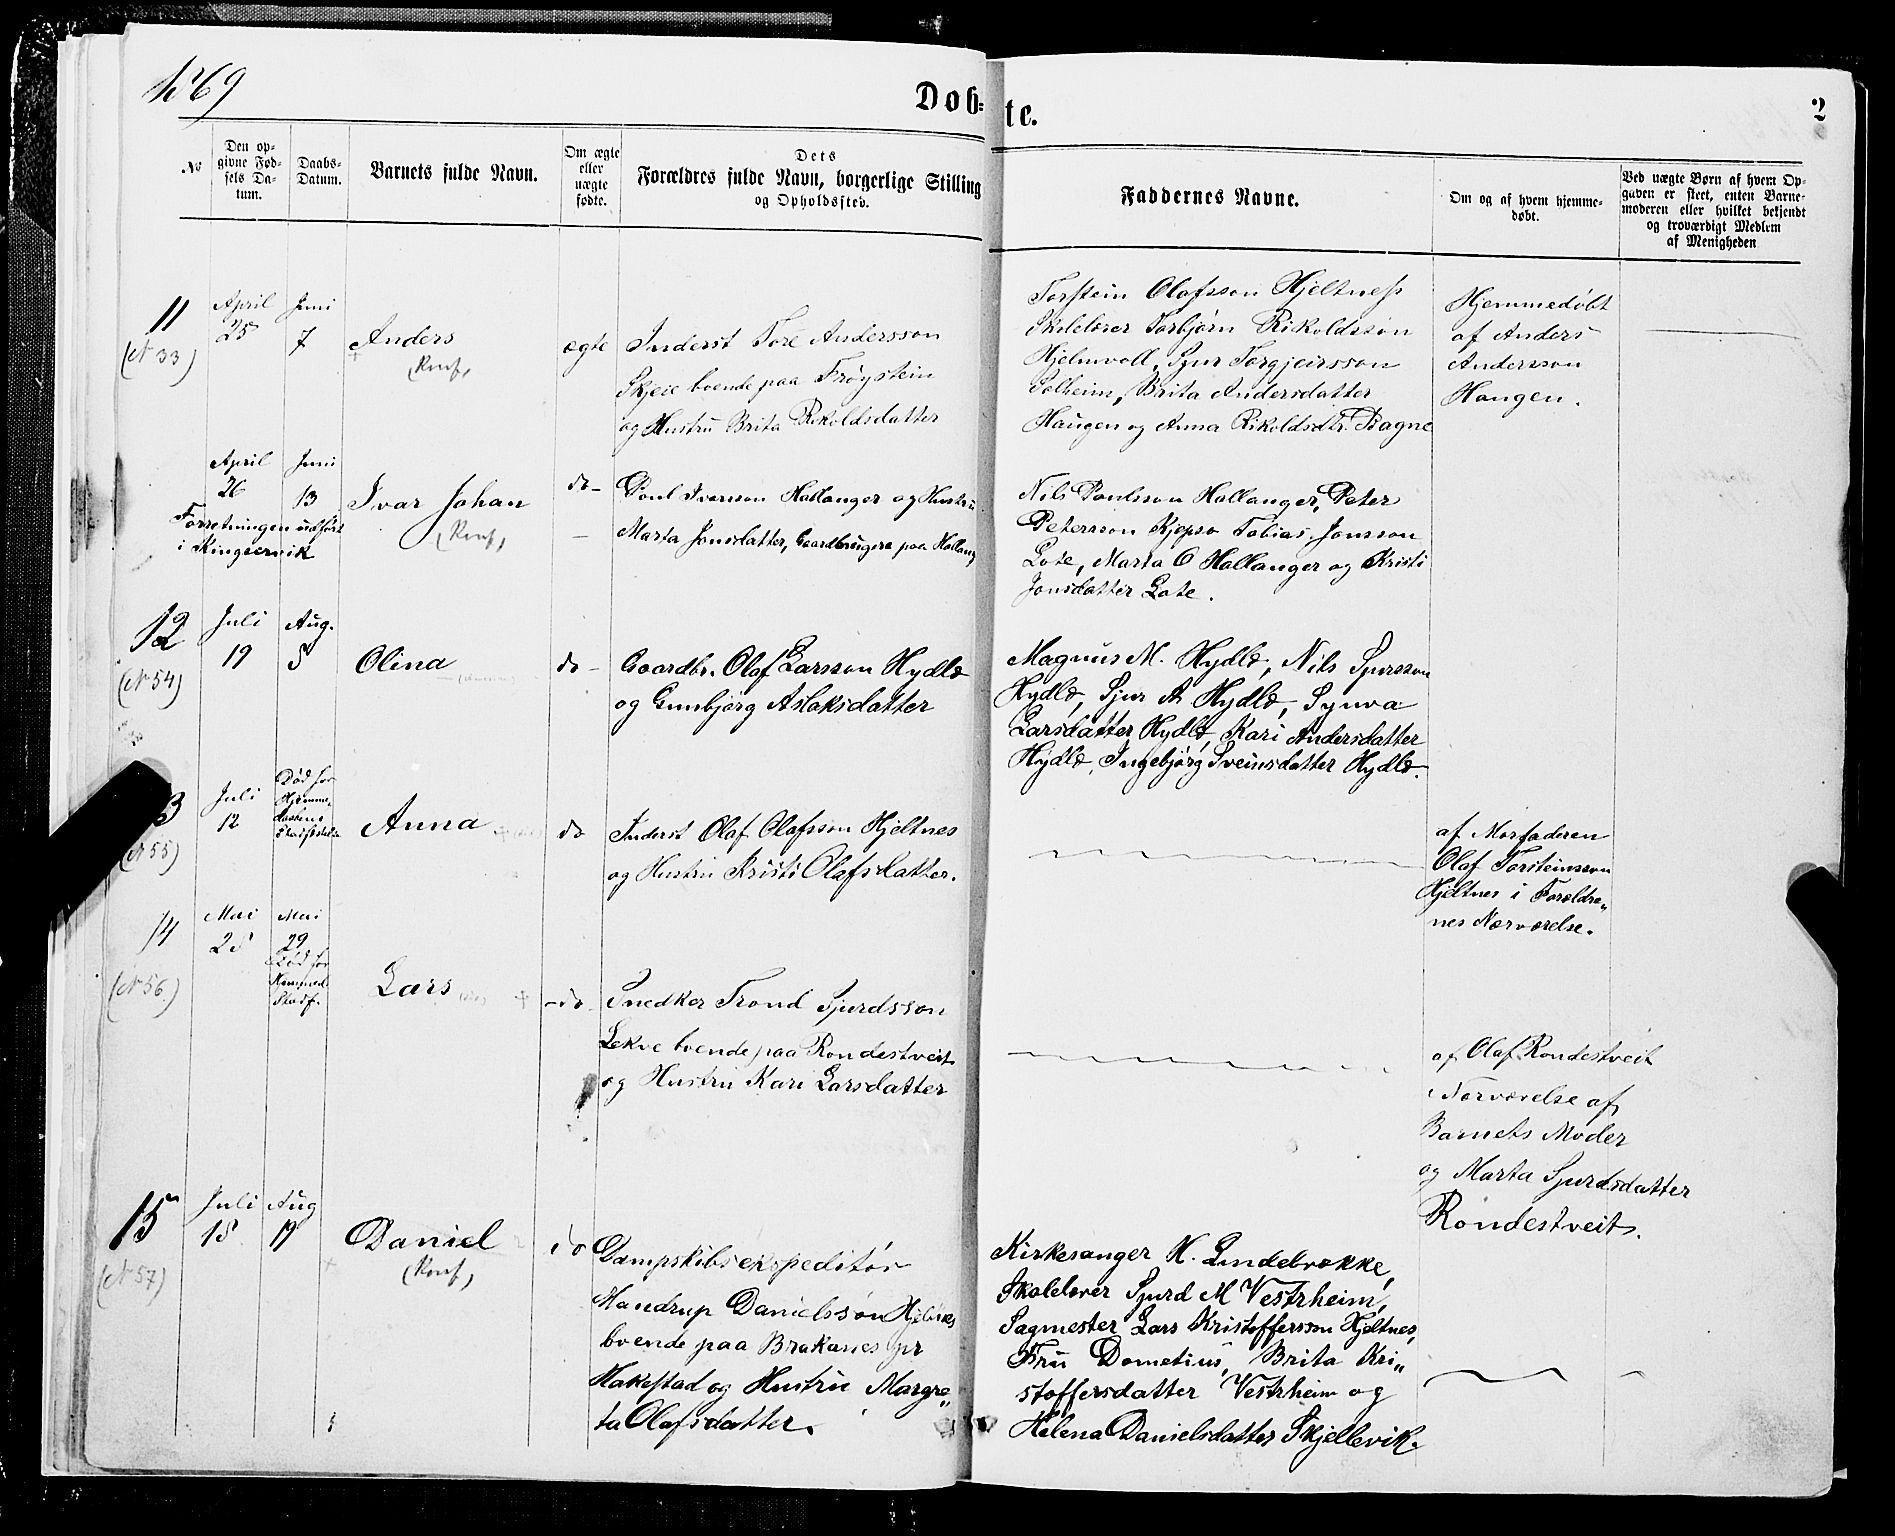 1869
Døb-
te.
2
No
Den op-
givne Fød-
sels Da-
tum.
Daabs-
Datum.
Barnets fulde Navn.
Om ægte
eller
uægte
fødte.
Dets
Forældres fulde Navn, borgerlige Stilling
og Opholdssted.
Faddernes Navne.
Om og af hvem hjemme-
døbt.
Ved uægte Børn af hvem Op-
gaven er skeet, enten Barne-
moderen eller hvilket bekjendt
og troværdigt Medlem
af Menigheden
11
(N 33)
April
25
Juni
7
Anders
(Konf,
ægte
Inderst Tore Andersson
Skjeie boende paa Frøystein
og Hustru Brita Rikoldsdatter
Torstein Olafsson Hjeltness
Skolelærer Torbjørn Rikoldssøn
Hjelmvoll, Sjur Torgjeirsson
Solheim, Brita Andersdatter
Haugen og Anna Rikoldsdtr. Tragne
Hjemmedøbt
af Anders
Andersson
Haugen.
April
26
Juni
13
Forretningen udført
i Kingservik
Ivar Johan
(Konf,
do -
Poul Iverson Hallanger og Hustru
Marta Jonsdatter, Gaardbrugere paa Hallang
Nils Poulsson Hallanger, Peter
Petersson Kjepso Tobias Jonsson
Lote, Marta O Hallanger og Kristi
Jonsdatter Lote.
12
(N 54)
Juli
19
Aug.
5
Olina
do -
Gaardbr. Olaf Larsson Hydle
og Gunbjørg Aslaksdatter
Magnus M. Hydle, Nils Sjursson
Hydle, Sjur A Hydle, Synva
Larsdatter Hydle, Kari Andersdatter
Hydle, Ingebjørg Sveinsdatter Hydle.
3
(N 55)
Juli
12
Død før
Hjemme-
daabens
Stadfæstelse
Anna
do
Inderst Olaf Olafsson Hjeltnes
og Hustru Kristi Olafsdatter.
af Morfaderen
Olaf Torsteinsson
Hjeltnes i Foreldre„
nes Nærværelse.
14
(N 56)
Mai
28
Mai
29
Død før
Hjemmed.
Stadf.
Lars
- do
Snedker Trond Sjurdsson
Lekve boende paa Rondestveit
og Hustru Kari Larsdatter
af Olaf Rondestveit
i Nærværelse af
Barnets Moder
og Marta Sjurdsdatter
Rondestveit.
15
(N 57)
Juli
18
Aug
19
Daniel
(Konf,
do
Dampskibsekspeditør
Mandrup Danielssøn Hjeltnes
boende paa Brakanes pr
Hakestad og Hustru Margre„
ta Olafsdatter.
Kirkesanger H. Lindebrække,
Skolelærer Sjurd M Vestrheim,
Sagmester Lars Kristoffersson Hjeltnes,
Fru Dometius, Brita Kri„
stoffersdatter Vestrheim og
Helena Danielsdatter Skjellevik.